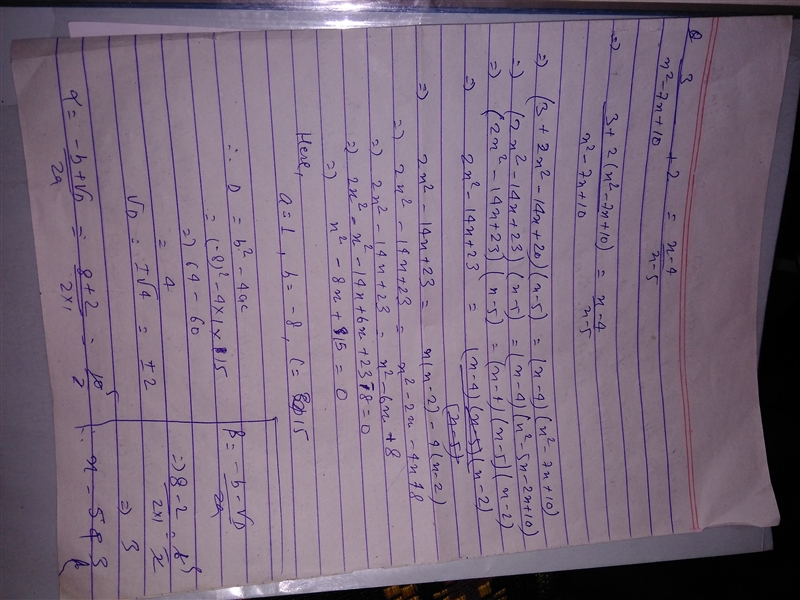 Q 3/(x²-7x+10) + 2 = (x-4)/(x-5)
⇒ (3+2(x²-7x+10))/(x²-7x+10) = (x-4)/(x-5)
⇒ (3+2x²-14x+20)(x-5) = (x-4)(x²-7x+10)
⇒ (2x²-14x+23)(x-5) = (x-4)(x²-5x-2x+10)
⇒ (2x²-14x+23)(x-5) = (x-4)(x-5)(x-2)
⇒ 2x²-14x+23 = (x-4)(x-5)(x-2)/(x-5)
⇒ 2x²-14x+23 = x(x-2)-4(x-2)
⇒ 2x²-14x+23 = x²-2x-4x+8
⇒ 2x²-14x+23 = x²-6x+8
⇒ 2x²-x²-14x+6x+23-8=0
⇒ x²-8x+15 = 0
Here,
a=1, b=-8, c=15
∴ D = b²-4ac
= (-8)²-4×1×15
⇒ 64-60
= 4
√D = ±√4 = ±2
α = (-b+√D)/2a = (8+2)/(2×1) = 10/2 5
β = (-b-√D)/2a
⇒ (8-2)/(2×1) = 6/2
⇒ 3
∴ x = 5 & 3